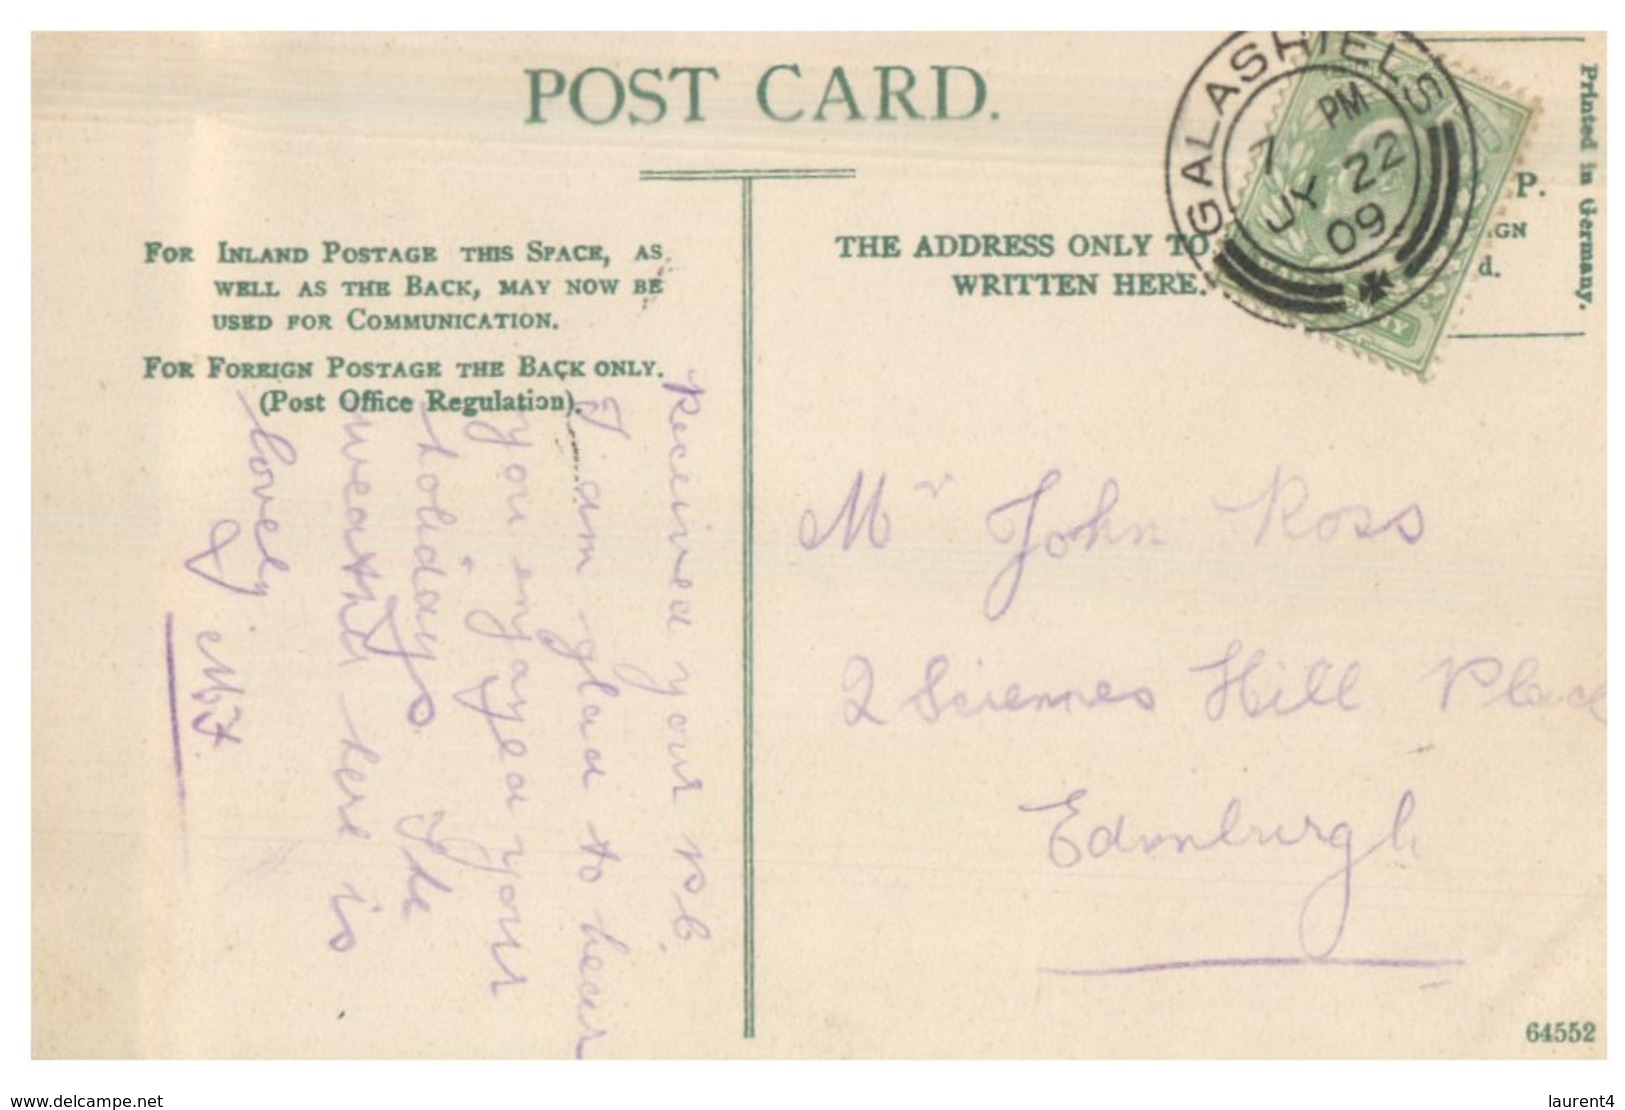 POST CARD.
FOR INLAND POSTAGE THIS SPACE, AS
WELL AS THE BACK, MAY NOW BE
USED FOR COMMUNICATION.
FOR FOREIGN POSTAGE THE BACK ONLY.
(Post Office Regulation).
Received your P.C.
I am glad to hear
you enjoyed your
holidays. The
weather here is
lovely.
J. McF.
THE ADDRESS ONLY TO
WRITTEN HERE.
GALASHIELS
7 PM
JY 22
09
P.
IGN
d.
Printed in Germany.
Mr John Ross
2 Sciennes Hill Place
Edinburgh
64552
www.delcampe.net
laurent4